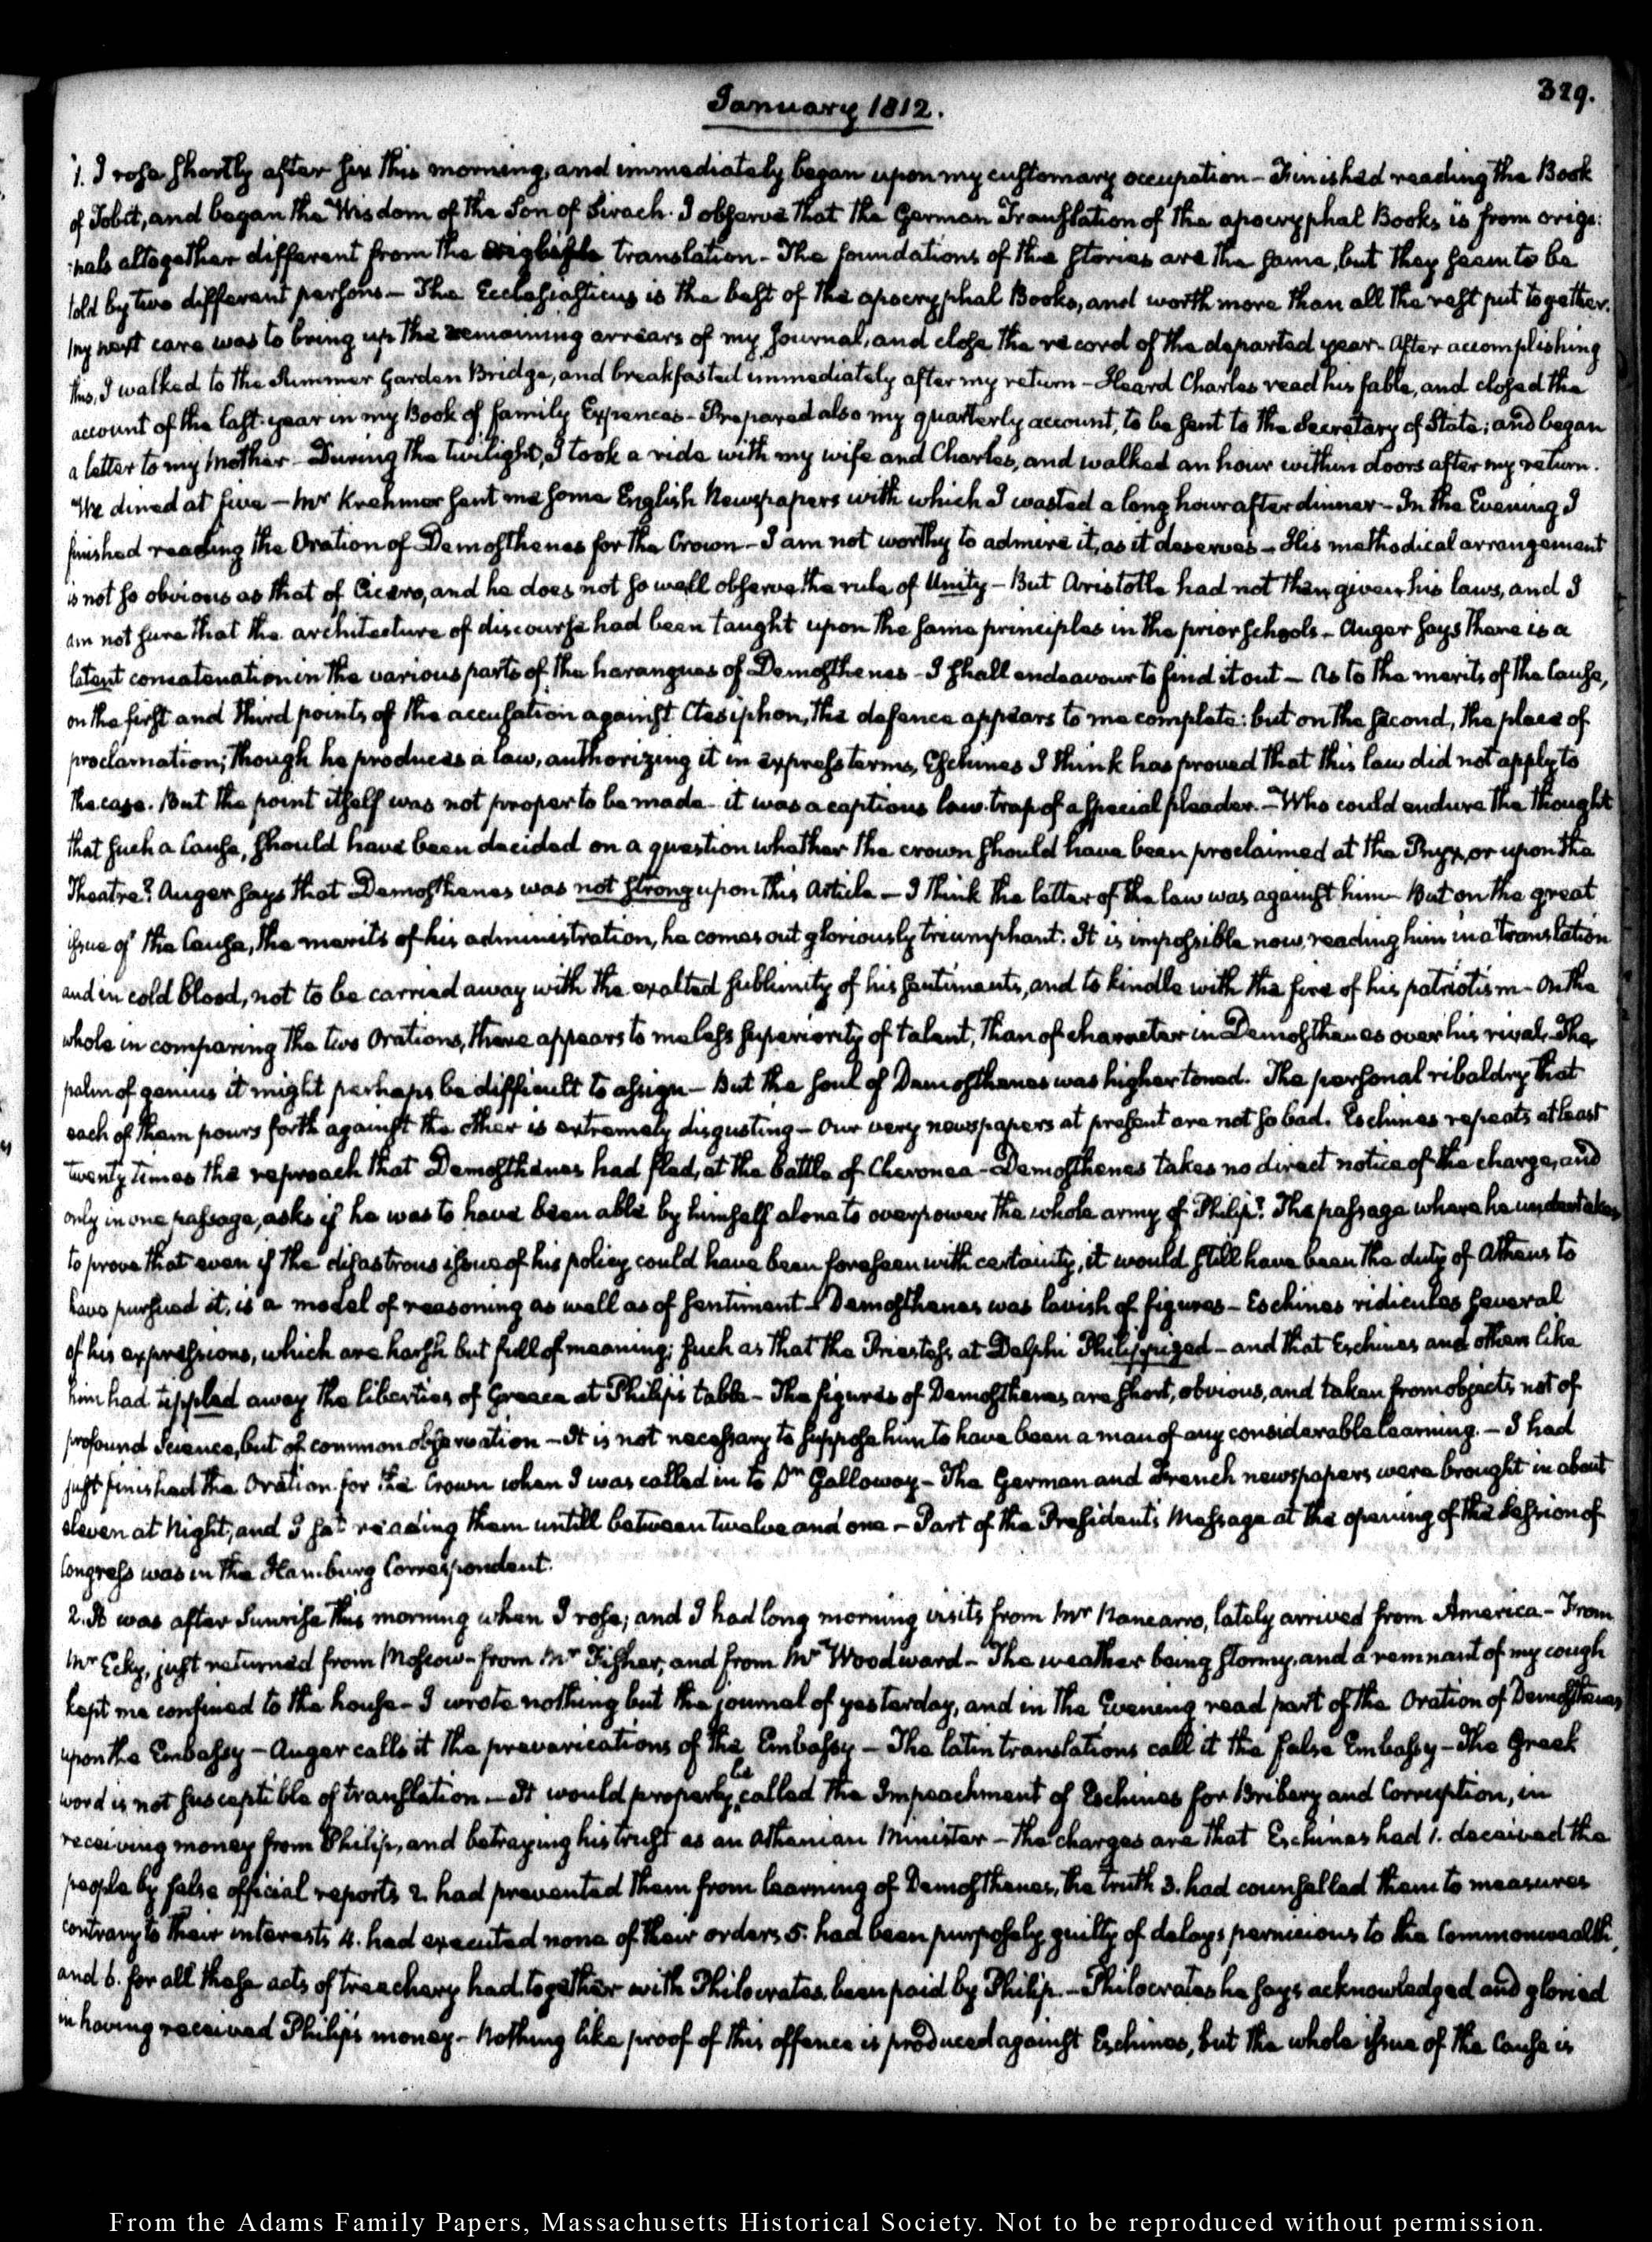 329.
January 1812.
1. I rose shortly after six this morning, and immediately began upon my customary occupation – Finished reading the Book
of Tobit, and began the Wisdom of the Son of Sirach. I observe that the German Translation of the apocryphal Books is from origi:
:nals altogether different from the translation – The foundations of the stories are the same, but they seem to be
told by two different persons – The Ecclesiasticus is the best of the apocryphal Books, and worth more than all the rest put together.
My next care was to bring up the remaining arrears of my Journal, and close the record of the departed year – After accomplishing
this, I walked to the Summer Garden Bridge, and breakfasted immediately after my return – Heard Charles read his fable, and closed the
account of the last year in my Book of family Expences – Prepared also my quarterly account, to be sent to the Secretary of State; and began
a letter to my Mother – During the twilight, I took a ride with my wife and Charles, and walked an hour within doors after my return.
We dined at five – Mr Krehmer sent me some English Newspapers with which I wasted a long hour after dinner – In the Evening I
finished reading the Oration of Demosthenes for the Crown – I am not worthy to admire it, as it deserves – His methodical arrangement
is not so obvious as that of Cicero, and he does not so well observe the rule of Unity – But Aristotle had not then given his laws, and I
am not sure that the architecture of discourse had been taught upon the same principles in the prior schools – Auger says there is a
latent concatenation in the various parts of the harangues of Demosthenes – I shall endeavour to find it out – As to the merits of the Cause,
on the first and third points of the accusation against Ctesiphon, the defence appears to me complete: but on the second, the place of
proclamation; though he produces a law, authorizing it in express terms, Eschines I think has proved that this law did not apply to
the case. But the point itself was not proper to be made – it was a captious law-trap of a special pleader. – Who could endure the thought
that such a Cause, should have been decided on a question whether the crown should have been proclaimed at the Pnyx, or upon the
Theatre? Auger says that Demosthenes was not strong upon this Article – I think the letter of the law was against him – But on the great
issue of the Cause, the merits of his administration, he comes out gloriously triumphant. It is impossible now, reading him in a translation
and in cold blood, not to be carried away with the exalted sublimity of his sentiments, and to kindle with the fire of his patriotism – On the
whole in comparing the two Orations, there appears to me less superiority of talent, than of character in Demosthenes over his rival. The
palm of genius it might perhaps be difficult to assign – But the soul of Demosthenes was higher toned. The personal ribaldry that
each of them pours forth against the other is extremely disgusting – Our very newspapers at present are not so bad. Eschines repeats at least
twenty times the reproach that Demosthenes had fled, at the battle of Cheronea – Demosthenes takes no direct notice of the charge, and
only in one passage, asks if he was to have been able by himself alone to overpower the whole army of Philip? The passage where he undertakes
to prove that even if the disastrous issue of his policy could have been foreseen with certainty, it would still have been the duty of Athens to
have pursued it, is a model of reasoning as well as of sentiment – Demosthenes was lavish of figures – Eschines ridicules several
of his expressions, which are harsh but full of meaning; such as that the Priestess at Delphi Philippized – and that Eschines and others like
him had tippled away the liberties of Greece at Philip's table – The figures of Demosthenes are short, obvious, and taken from objects not of
profound Science, but of common observation – It is not necessary to suppose him to have been a man of any considerable learning. – I had
just finished the Oration for the Crown when I was called in to Dr Galloway – The German and French newspapers were brought in about
eleven at Night, and I sat reading them untill between twelve and one – Part of the President's Message at the opening of the Session of
Congress was in the Hamburg Correspondent.
2. It was after Sunrise this morning when I rose; and I had long morning visits from Mr Nancarro, lately arrived from America – From
Mr Eeky, just returned from Moscow – from Mr Fisher, and from Mr Woodward – The weather being stormy, and a remnant of my cough
kept me confined to the house – I wrote nothing but the journal of yesterday, and in the Evening read part of the Oration of Demosthenes
upon the Embassy – Auger calls it the prevarications of the Embassy – The latin translations call it the false Embassy – The Greek
word is not susceptible of translation – It would properly be called the Impeachment of Eschines for Bribery and Corruption, in
receiving money from Philip, and betraying his trust as an Athenian Minister – The charges are that Eschines had 1. deceived the
people by false official reports 2. had prevented them from learning of Demosthenes, the truth 3. had counselled them to measures
contrary to their interests 4. had executed none of their orders 5. had been purposely guilty of delays pernicious to the Commonwealth,
and 6. for all these acts of treachery had, together with Philocrates, been paid by Philip. – Philocrates he says acknowledged and gloried
in having received Philip's money – Nothing like proof of this offence is produced against Eschines, but the whole issue of the Cause is
From the Adams Family Papers, Massachusetts Historical Society. Not to be reproduced without permission.